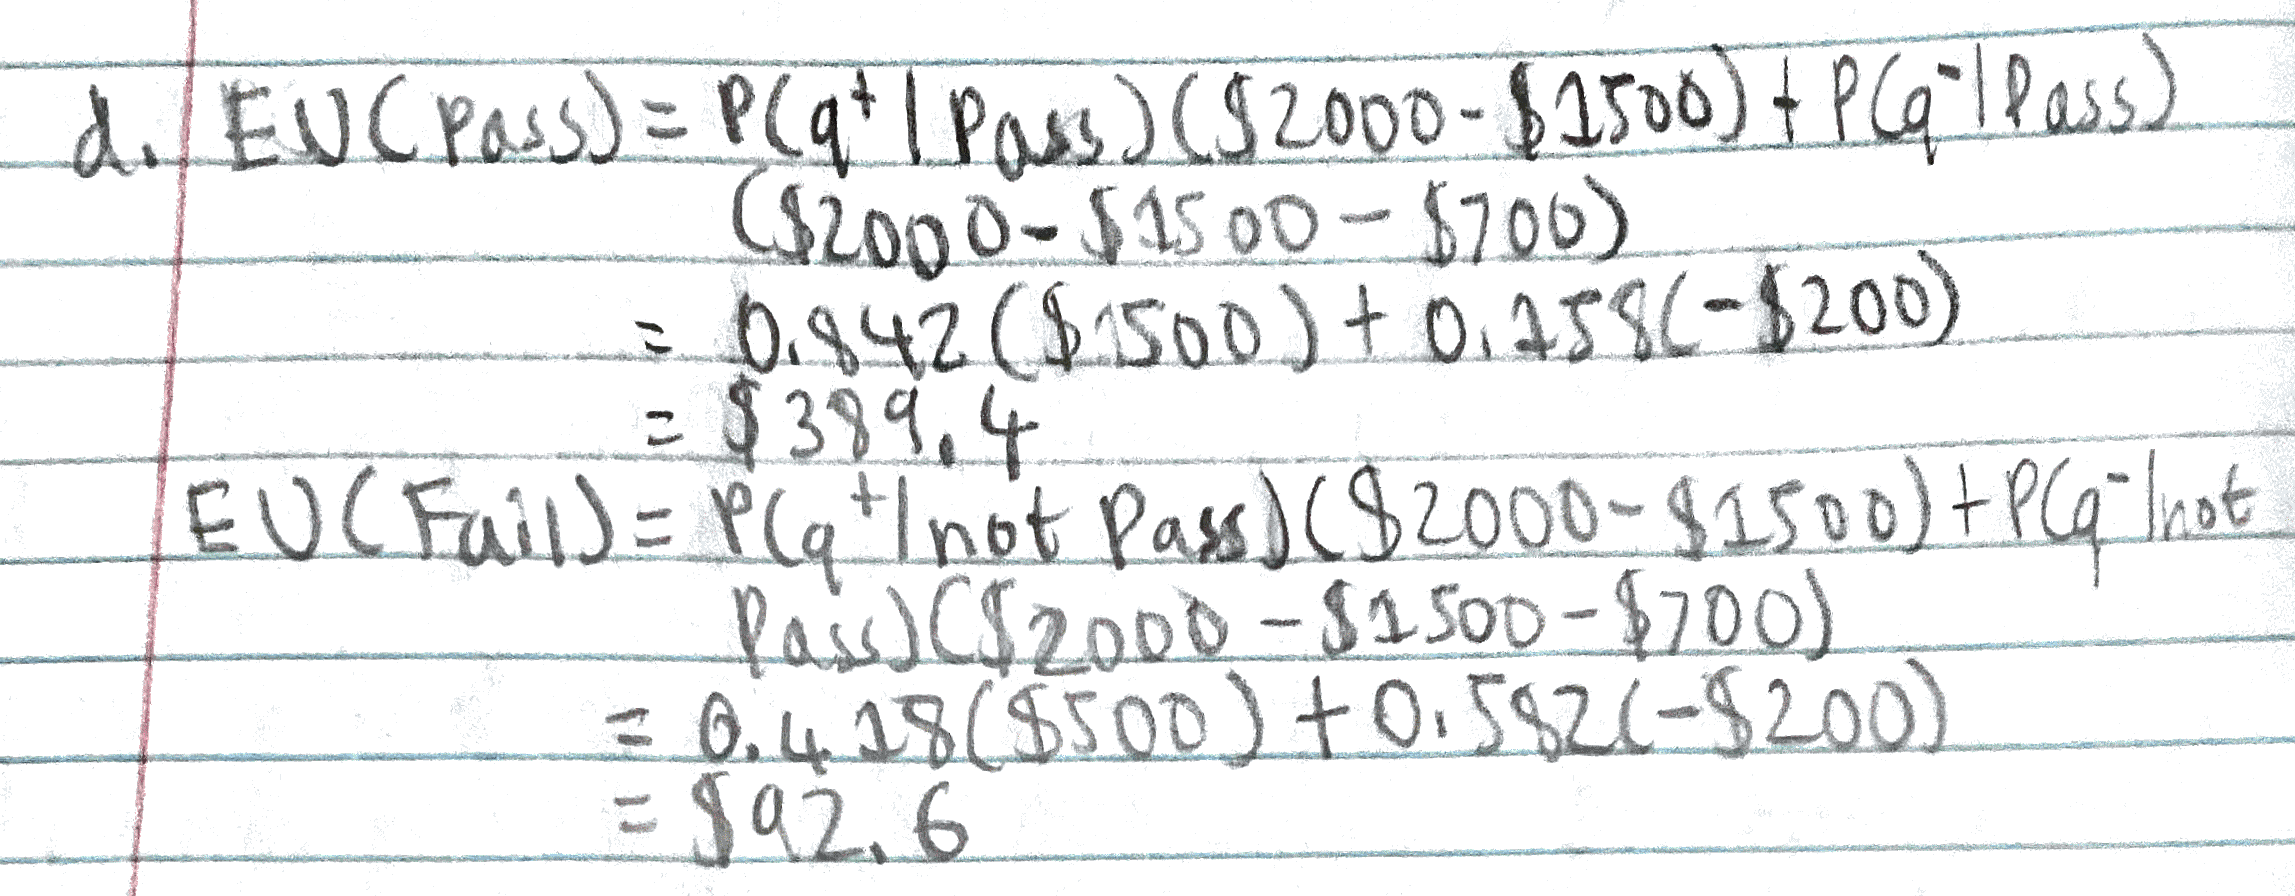 d. EU(Pass) = P(q⁺|Pass)($2000-$1500) + P(q⁻|Pass)
($2000-$1500-$700)
= 0.842($1500) + 0.158(-$200)
= $389.4
EU(Fail) = P(q⁺|not Pass)($2000-$1500) + P(q⁻|not
Pass)($2000-$1500-$700)
= 0.418($500) + 0.582(-$200)
= $92.6